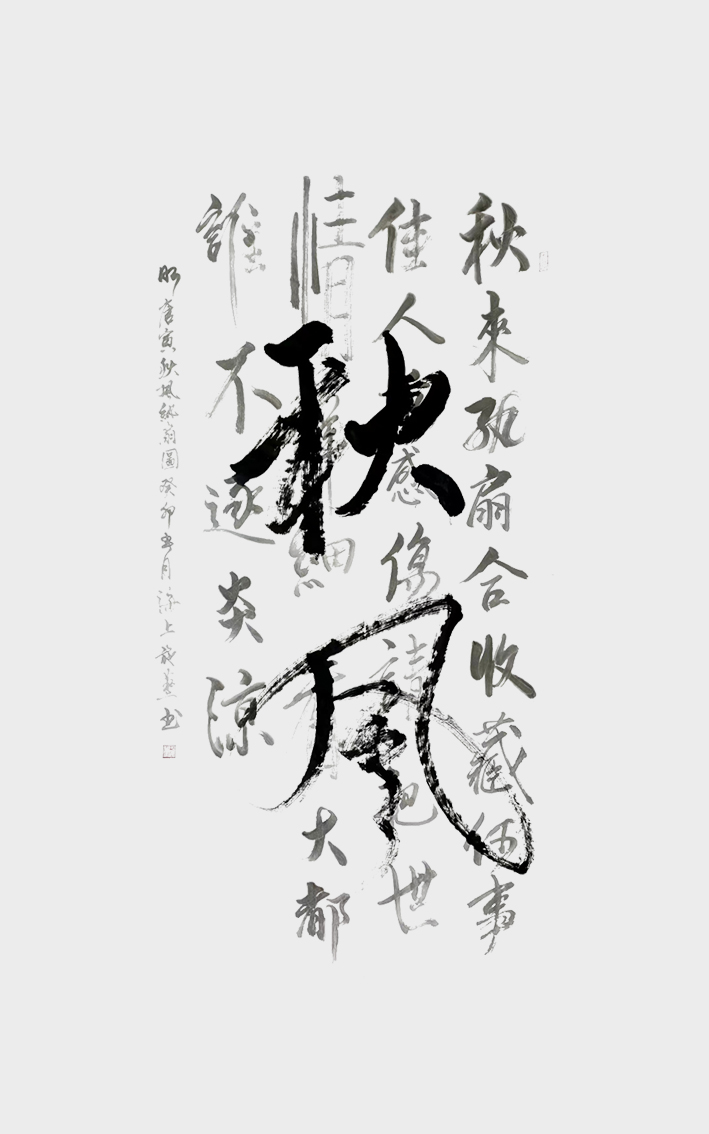 秋風
秋來紈扇合收藏何事
佳人重感傷請把世
情詳細看大都
誰不逐炎涼
明唐寅秋風紈扇圖癸卯月上书